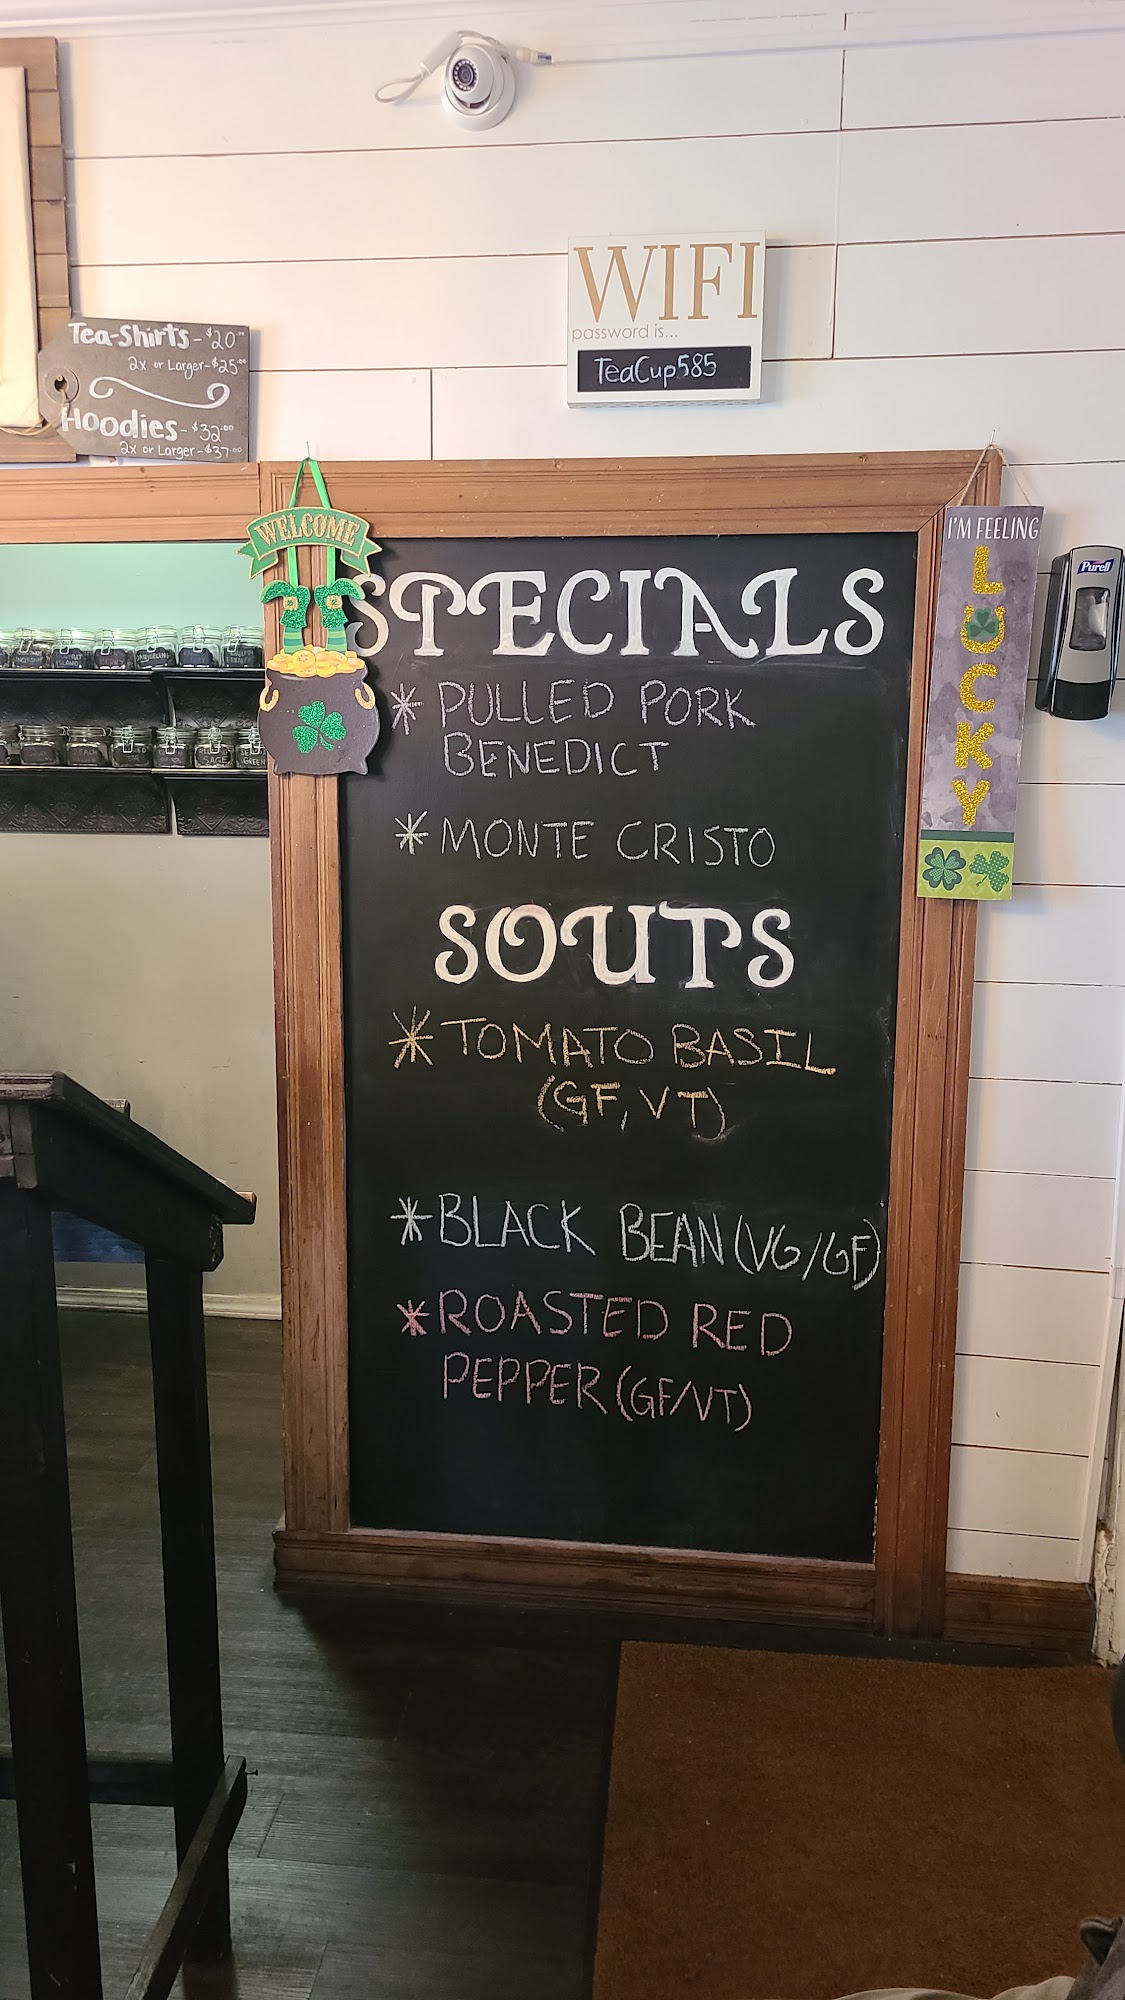 WIFI
password is...
TeaCup585
Tea-Shirts - $20.00
2x or Larger - $25.00
Hoodies - $32.00
2x or Larger - $37.00
WELCOME
I'M FEELING
LUCKY
Purell
SPECIALS
* PULLED PORK
BENEDICT
* MONTE CRISTO
SOUPS
* TOMATO BASIL
(GF, VT)
* BLACK BEAN (VG/GF)
* ROASTED RED
PEPPER (GF/VT)
ISLAND
SAGE
GREEN